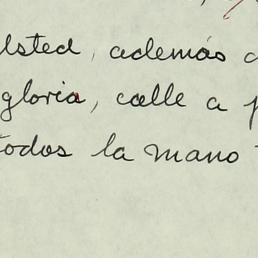 lsted, además
gloria, calle a
todos la mano